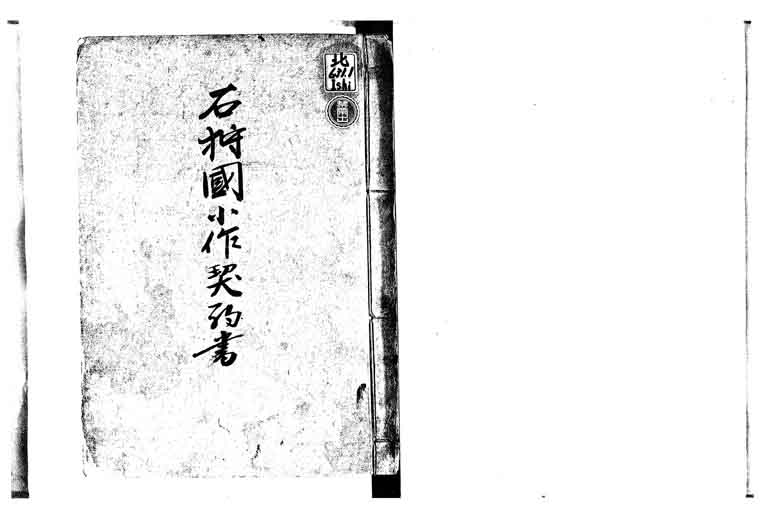 北
631.1
Ishi
石狩國小作契約書